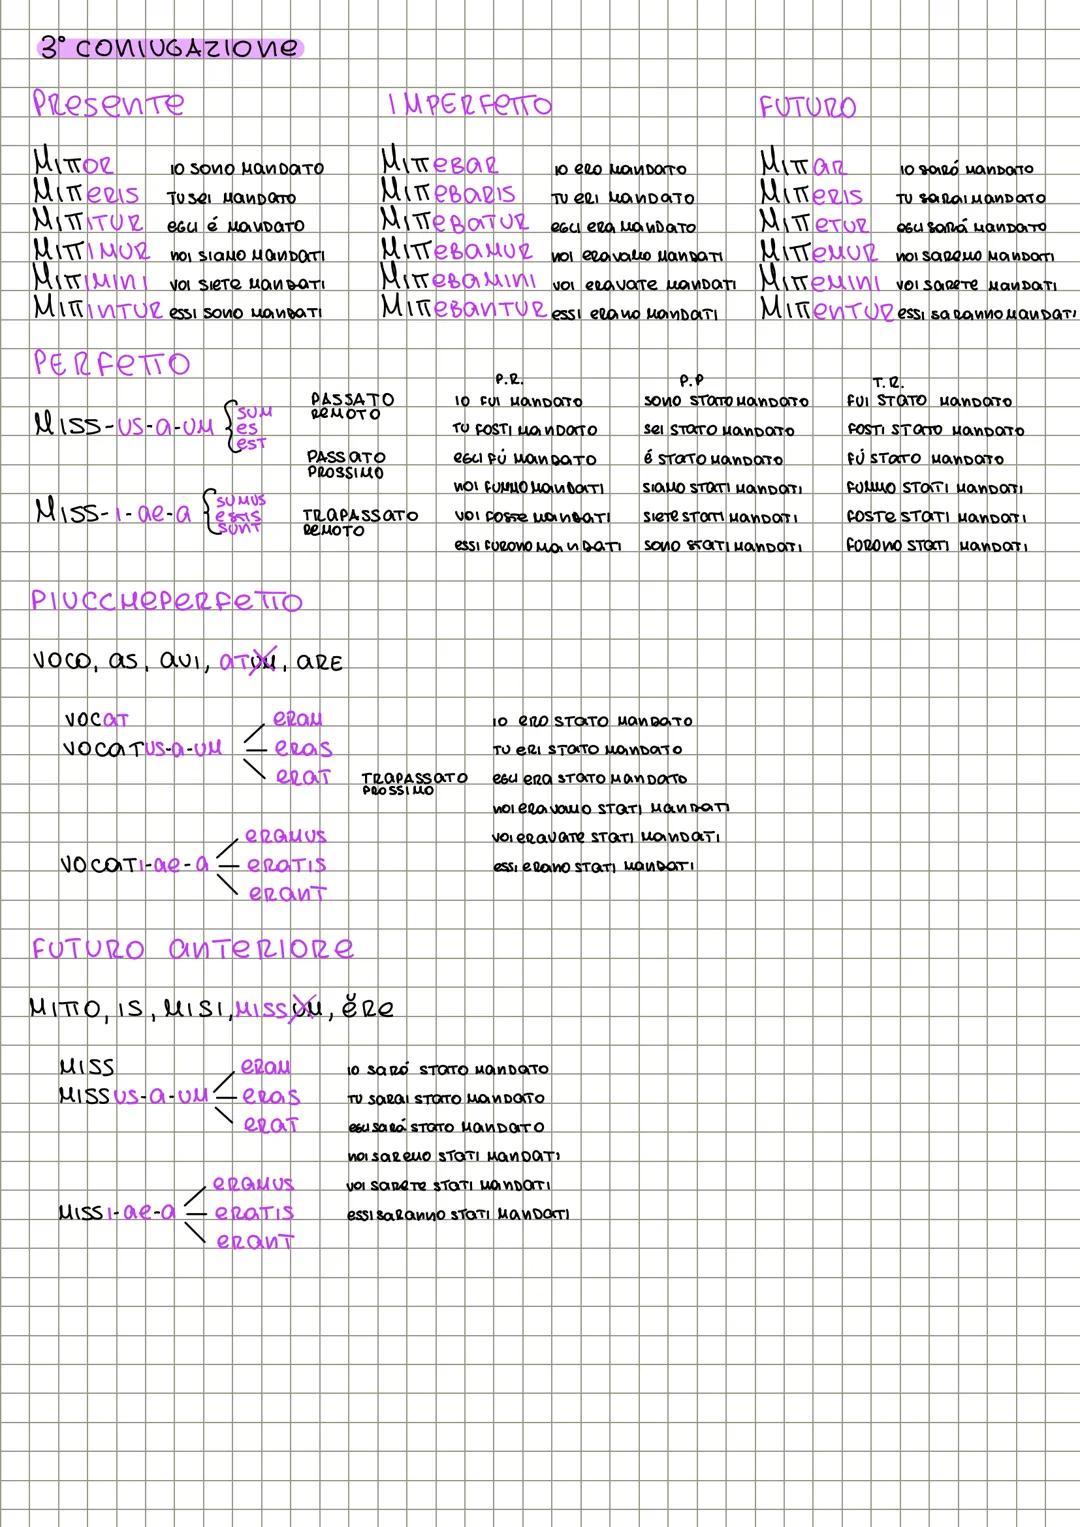 3° CONIUGAZIONE
PRESENTE IMPERFETTO FUTURO
MITTOR IO SONO MANDATO MITTEBAR IO ERO MANDATO MITTAR IO SARÓ MANDATO
MITTERIS TU SEI MANDATO MITTEBARIS TU ERI MANDATO MITTERIS TU SARAI MANDATO
MITTITUR EGLI É MANDATO MITTEBATUR EGLI ERA MANDATO MITTETUR EGLI SARÁ MANDATO
MITTIMUR NOI SIAMO MANDATI MITTEBAMUR NOI ERAVAMO MANDATI MITTEMUR NOI SAREMO MANDATI
MITTIMINI VOI SIETE MANDATI MITTEBAMINI VOI ERAVATE MANDATI MITTEMINI VOI SARETE MANDATI
MITTINTUR ESSI SONO MANDATI MITTEBANTUR ESSI ERANO MANDATI MITTENTUR ESSI SARANNO MANDATI
PERFETTO
P.R. P.P T.R.
PASSATO REMOTO IO FUI MANDATO SONO STATO MANDATO FUI STATO MANDATO
MISS-US-A-UM SUM ES EST TU FOSTI MANDATO SEI STATO MANDATO FOSTI STATO MANDATO
PASSATO PROSSIMO EGLI FÚ MANDATO É STATO MANDATO FÚ STATO MANDATO
NOI FUMMO MANDATI SIAMO STATI MANDATI FUMMO STATI MANDATI
MISS-I-AE-A SUMUS ESTIS SUNT TRAPASSATO REMOTO VOI FOSTE MANDATI SIETE STATI MANDATI FOSTE STATI MANDATI
ESSI FURONO MANDATI SONO STATI MANDATI FURONO STATI MANDATI
PIUCCHEPERFETTO
VOCO, AS, AVI, ATUM, ARE
VOCAT ERAM IO ERO STATO MANDATO
VOCATUS-A-UM ERAS TU ERI STATO MANDATO
ERAT TRAPASSATO PROSSIMO EGLI ERA STATO MANDATO
NOI ERAVAMO STATI MANDATI
ERAMUS VOI ERAVATE STATI MANDATI
VOCATI-AE-A ERATIS ESSI ERANO STATI MANDATI
ERANT
FUTURO ANTERIORE
MITTO, IS, MISI, MISSUM, ĔRE
MISS ERAM IO SARÓ STATO MANDATO
MISSUS-A-UM ERAS TU SARAI STATO MANDATO
ERAT EGLI SARÁ STATO MANDATO
NOI SAREMO STATI MANDATI
ERAMUS VOI SARETE STATI MANDATI
MISSI-AE-A ERATIS ESSI SARANNO STATI MANDATI
ERANT